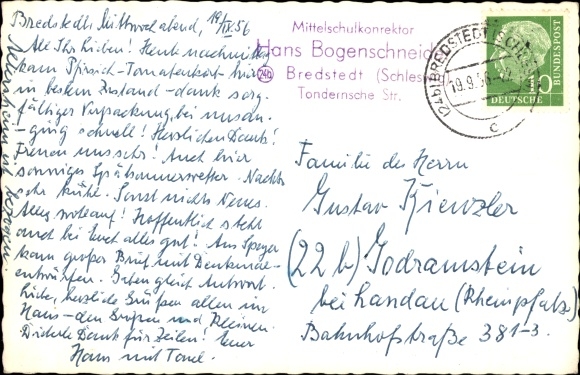 Bredstedt, Mittwochabend, 19/IX.56
All Ihr Lieben! Heute nachmittag
kam Pfirsich-Tomatenkorb hier
in bestem Zustand - dank sorg-
fältiger Verpackung, bei uns an.
- ging schnell! Herzlichen Dank!
Freuen uns sehr! Auch hier
sonniges Spätsommerwetter. Nachts
sehr kühl. Sonst nichts Neues.
Alles wohlauf! Hoffentlich steht
auch bei Euch alles gut! Aus Speyer
kam großer Brief mit
Gaben gleich Antwort.
herzliche Grüßen allen im
Haus - den Großen und Kleinen.
Dank für Zeilen! Euer
Hans mit
Mittelschulkonrektor
Hans Bogenschneider
24b Bredstedt (Schlesw
Tondernsche Str.
(24b) BREDSTEDT (SCHLESW
19.9.56
c
10
DEUTSCHE BUNDESPOST
Familie des Herrn
Gustav Kienzler
(22 b) Godramstein
bei Landau (Rheinpfalz)
Bahnhofstraße 381-3.